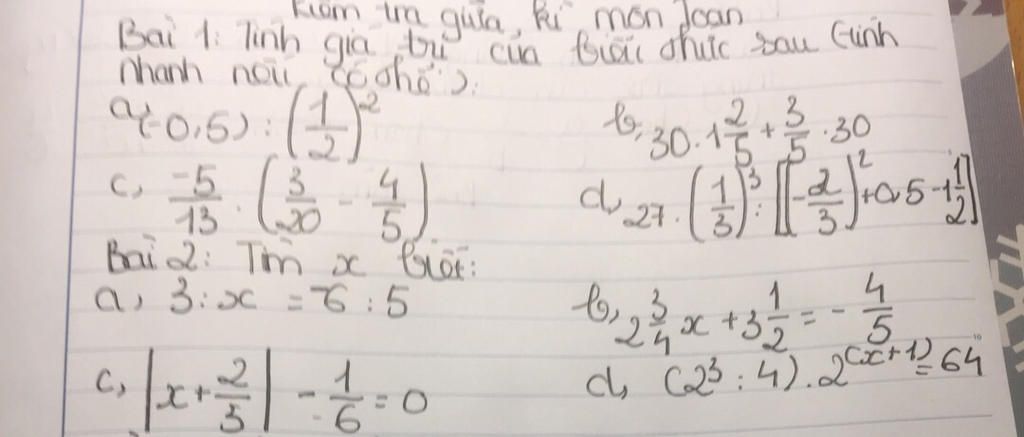 Kiểm tra giữa kì môn Toán
Bài 1: Tính giá trị của biểu thức sau (tính
nhanh nếu có thể):
a, (-0,5) : (1/2)^2 b, 30 . 1 2/5 + 3/5 . 30
c, -5/13 . (3/20 - 4/5) d, 27 . (1/3)^3 : [(-2/3)^2 + 0,5 - 1 1/2]
Bài 2: Tìm x biết:
a, 3 : x = 6 : 5 b, 2 3/4 x + 3 1/2 = - 4/5
c, |x + 2/3| - 1/6 = 0 d, (2^3 : 4) . 2^(x+1) = 64